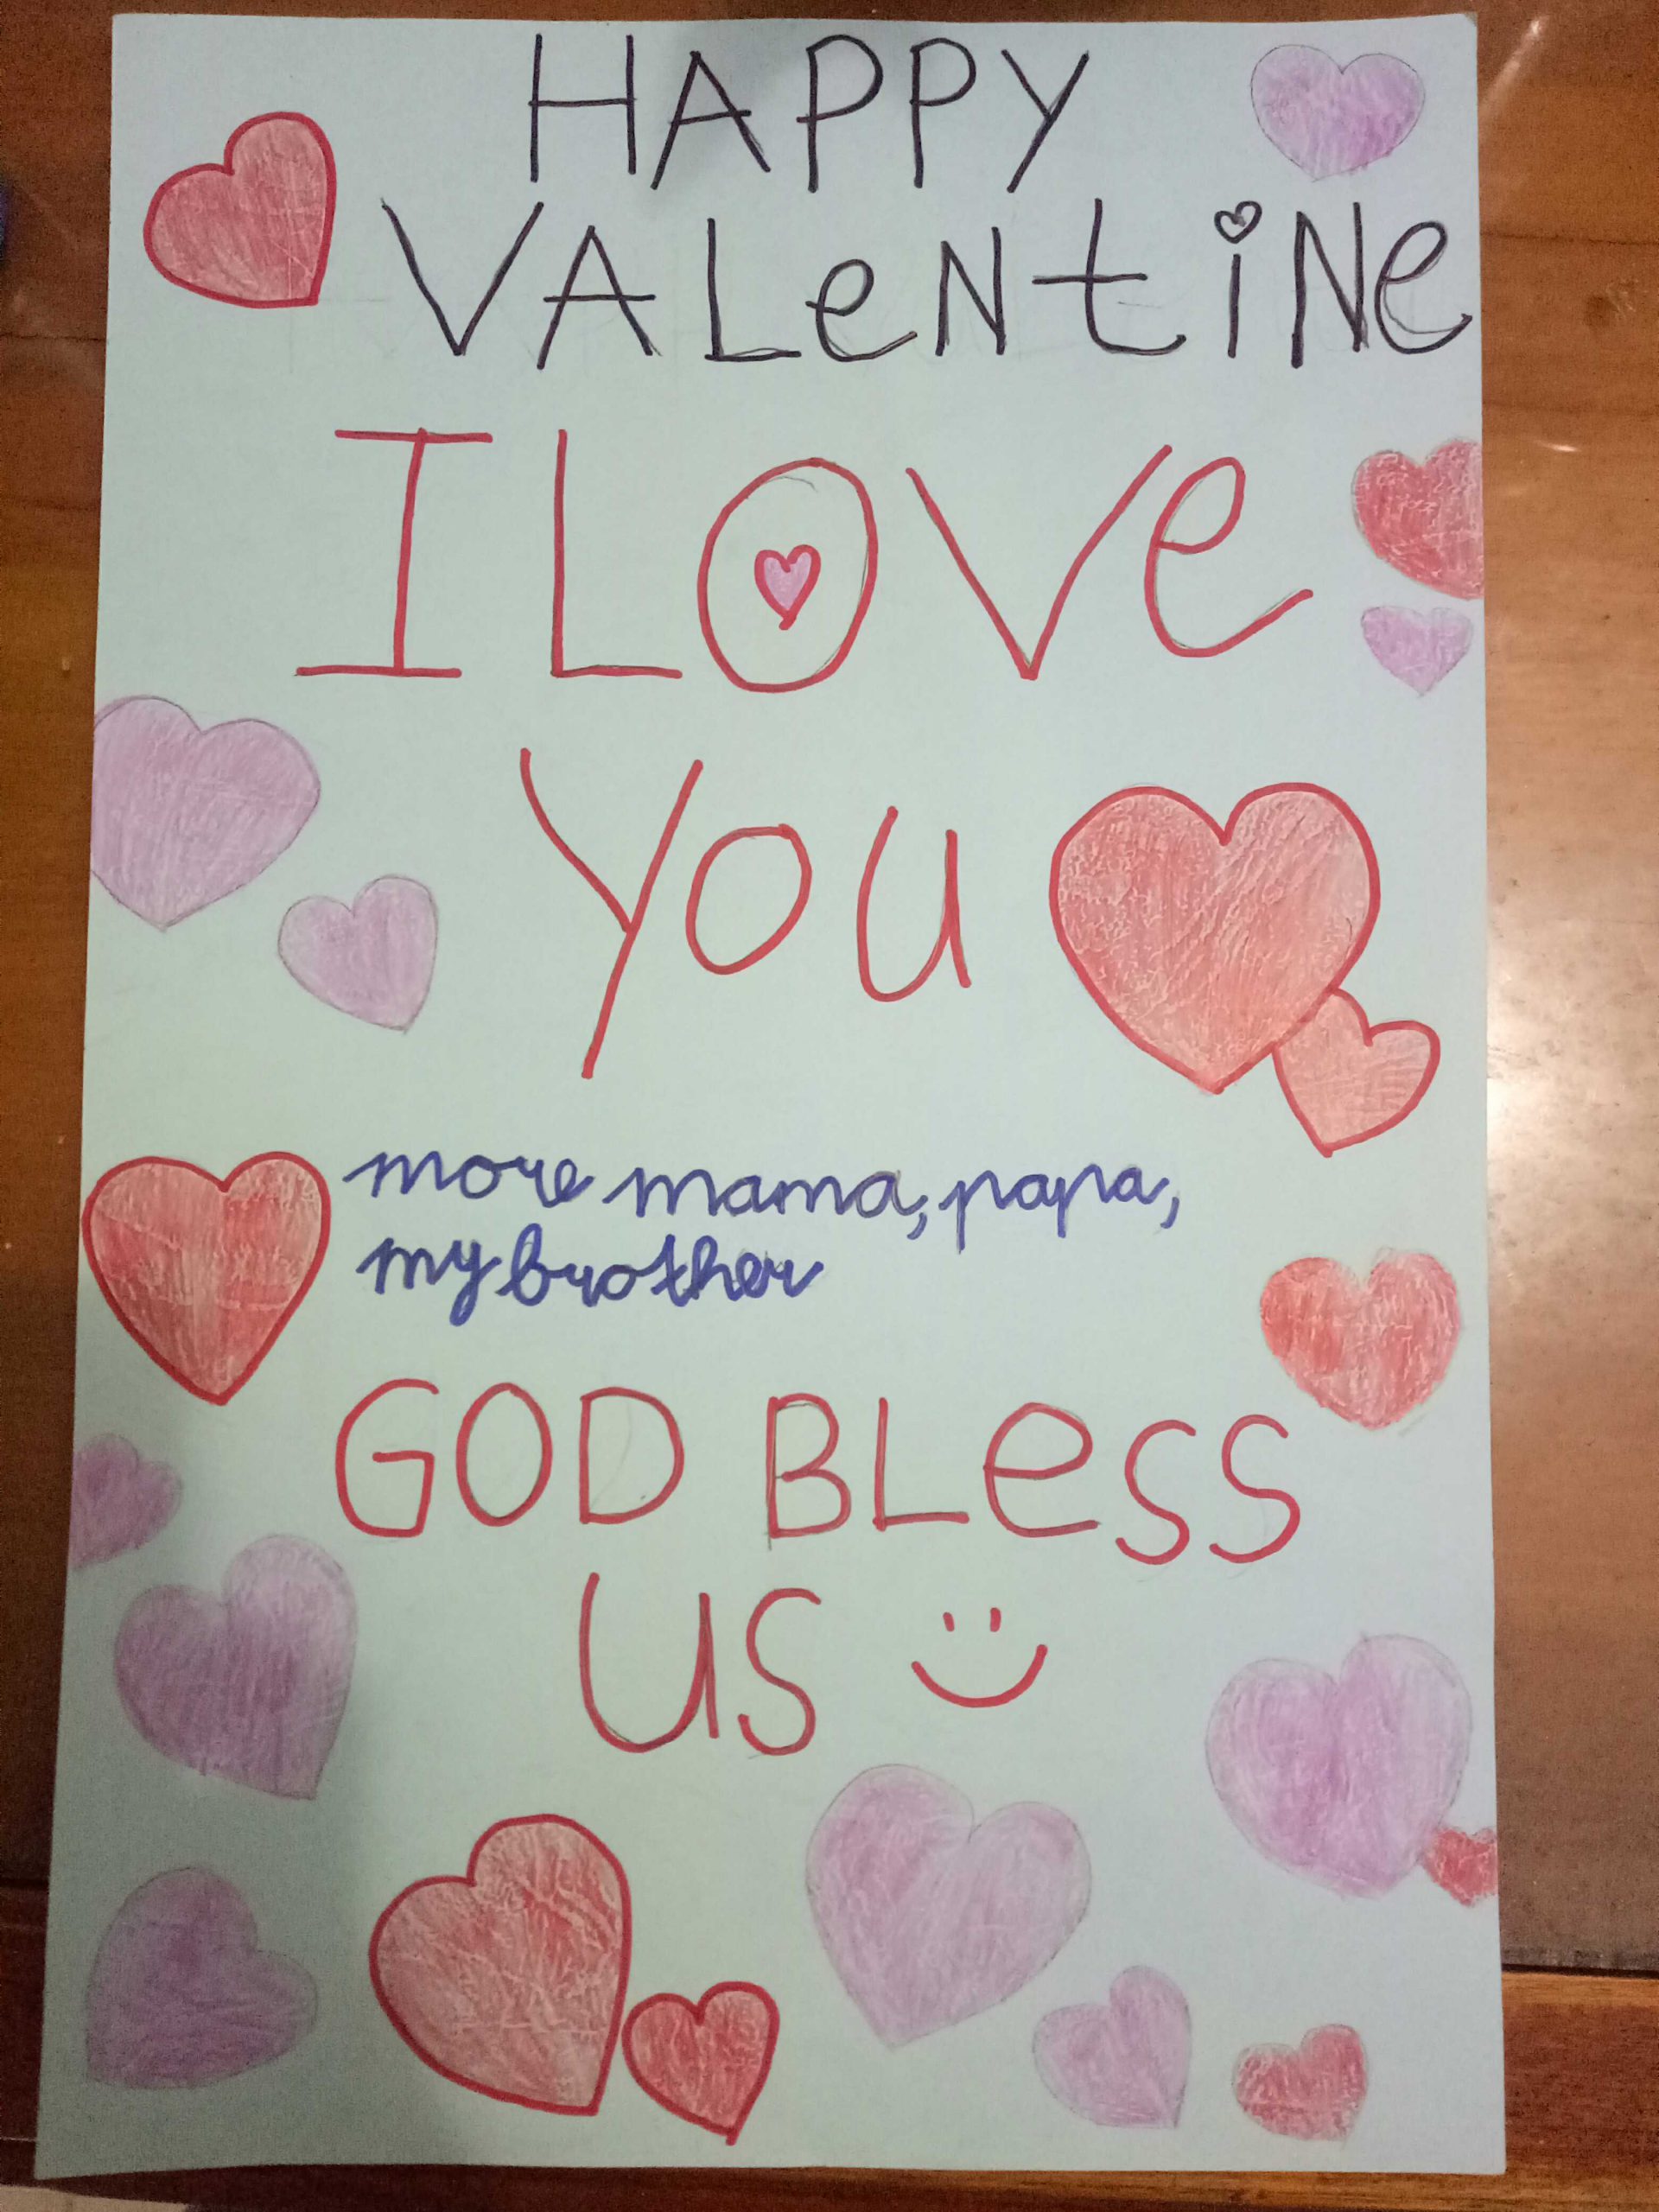 HAPPY
VALeNtiNe
I LOVe
YOU
more mama, papa,
my brother
GOD BLess
US